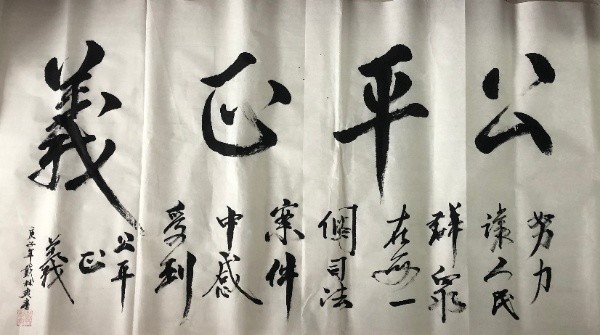 公平正義
努力
讓人民
群眾
在每一
個司法
案件
中感
受到
公平
正
義
庚子年